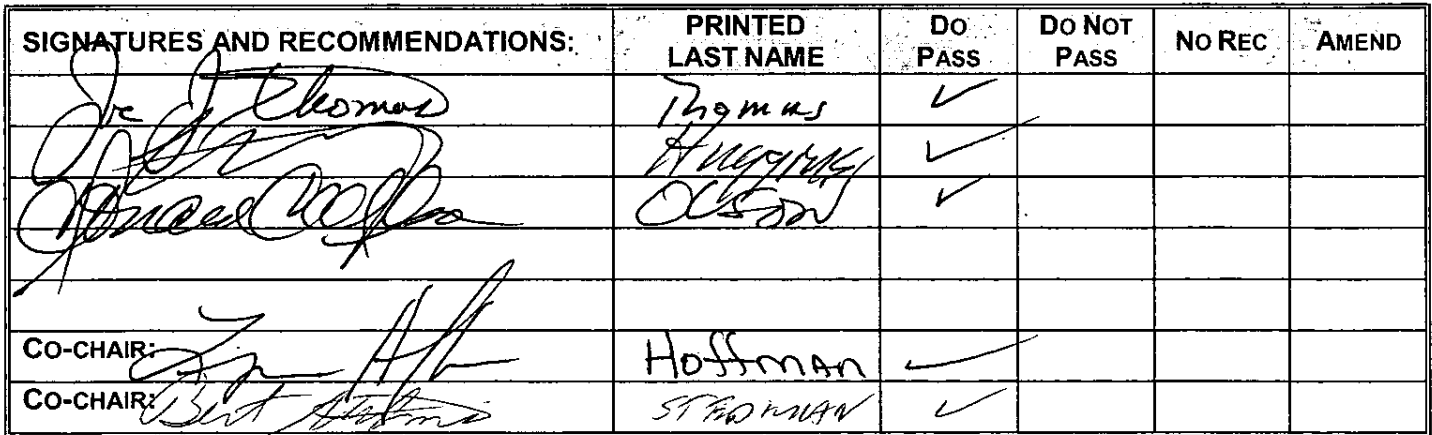 SIGNATURES AND RECOMMENDATIONS: PRINTED LAST NAME DO PASS DO NOT PASS NO REC AMEND
Joe J Thomas Thomas ✓
Huggins ✓
Donald C Olson OLSON ✓
CO-CHAIR: Hoffman ✓
CO-CHAIR: Bert Stedman STEDMAN ✓